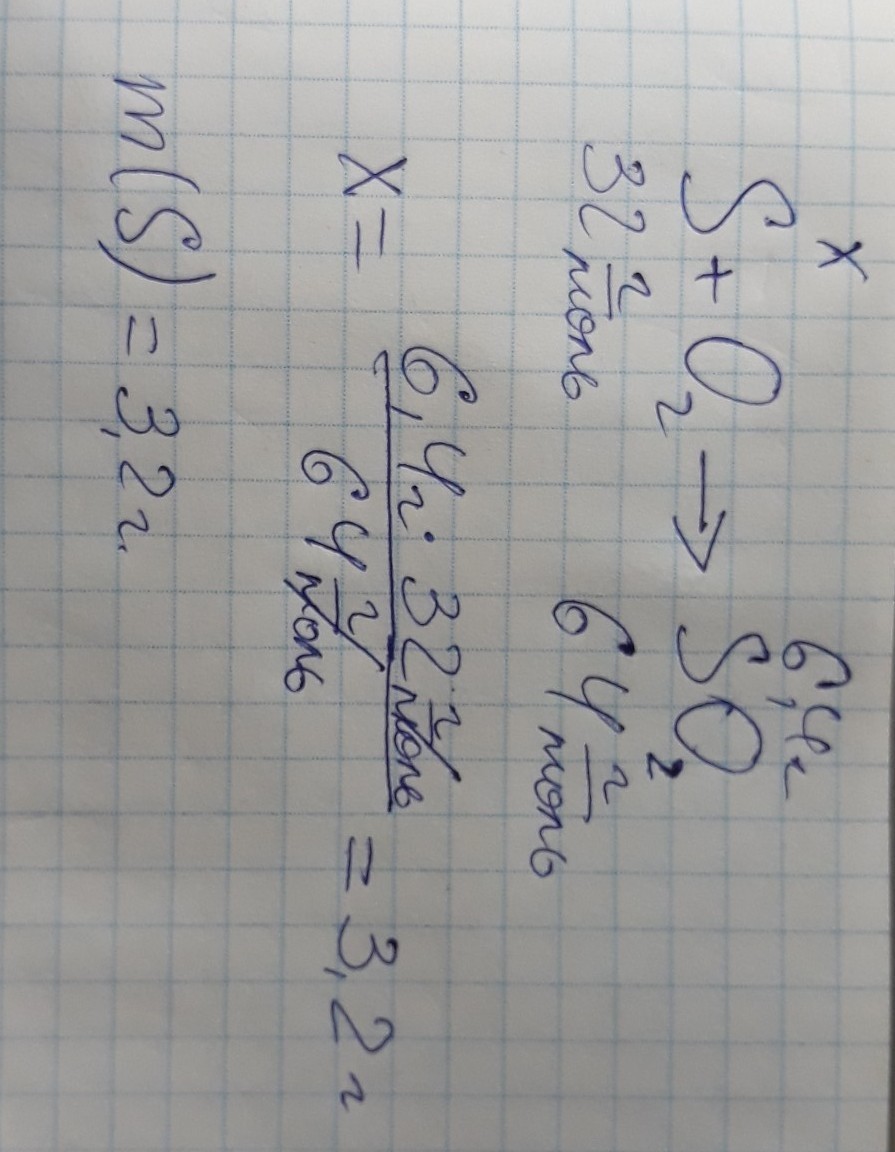 x 6,4г
S + O₂ → SO₂
32 г/моль 64 г/моль
x = 6,4г · 32 г/моль / 64 г/моль = 3,2 г
m(S) = 3,2 г.